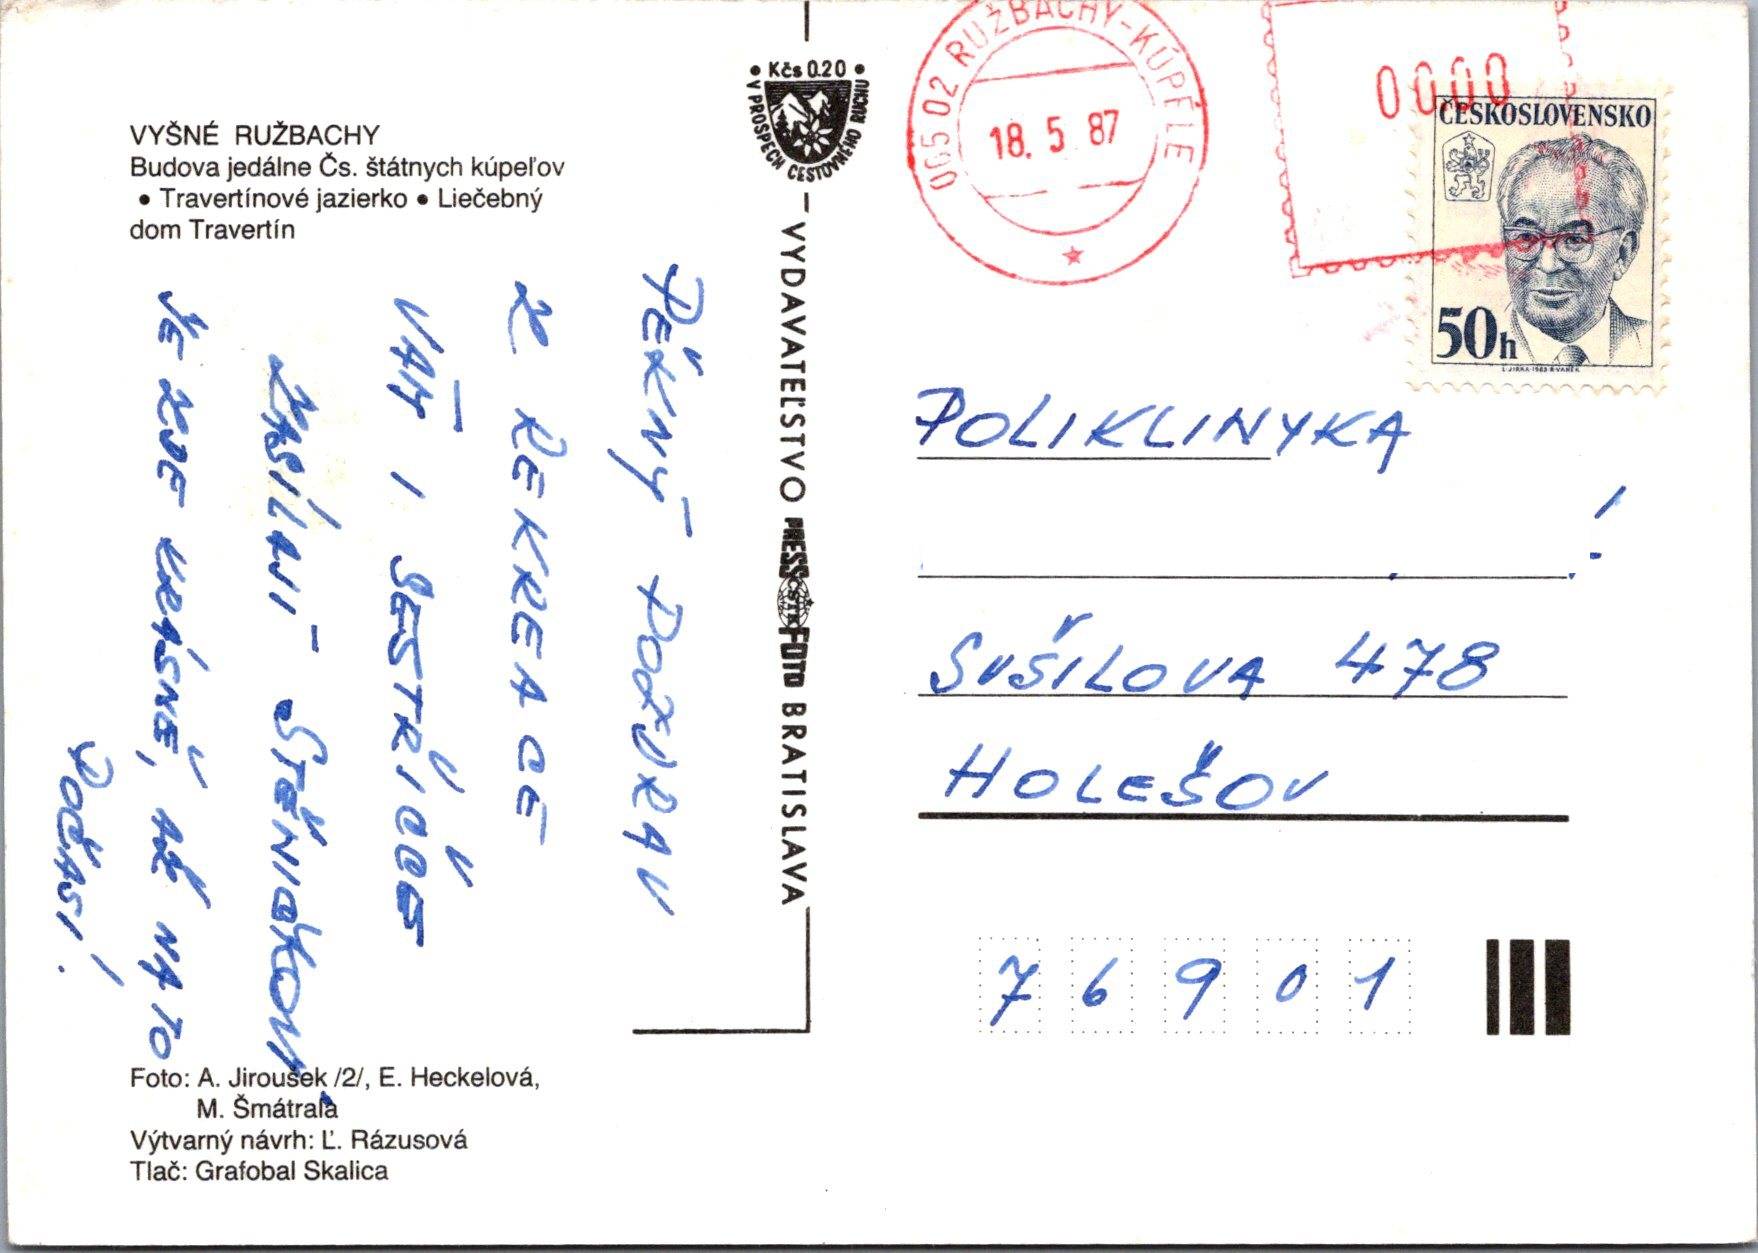 VYŠNÉ RUŽBACHY
Budova jedálne Čs. štátnych kúpeľov
• Travertínové jazierko • Liečebný
dom Travertín
PĚKNÝ POZDRAV
Z REKREACE
VÁM I SESTŘIČCE
ZASÍLAJÍ STĚNIČKOVI.
JE ZDE KRÁSNĚ, AŽ NA TO
POČASÍ!
Foto: A. Jiroušek /2/, E. Heckelová,
M. Šmátrala
Výtvarný návrh: Ľ. Rázusová
Tlač: Grafobal Skalica
• Kčs 0.20 •
V PROSPECH CESTOVNÉHO RUCHU
VYDAVATEĽSTVO PRESSFOTO BRATISLAVA
ČSTK
065 02 RUŽBACHY-KÚPELE
18. 5 87
0000
ČESKOSLOVENSKO
50h
L. JIRKA-1983-R. VANĚK
POLIKLINYKA
!
SUŠILOVA 478
HOLEŠOV
76901